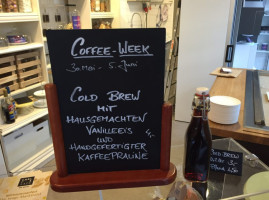 COFFEE-WEEK
30. Mai - 5. Juni
COLD BREW
MIT
HAUSGEMACHTEN
VANILLEEIS
UND
HANDGEFERTIGTER
KAFFEEPRALINE
COLD BREW